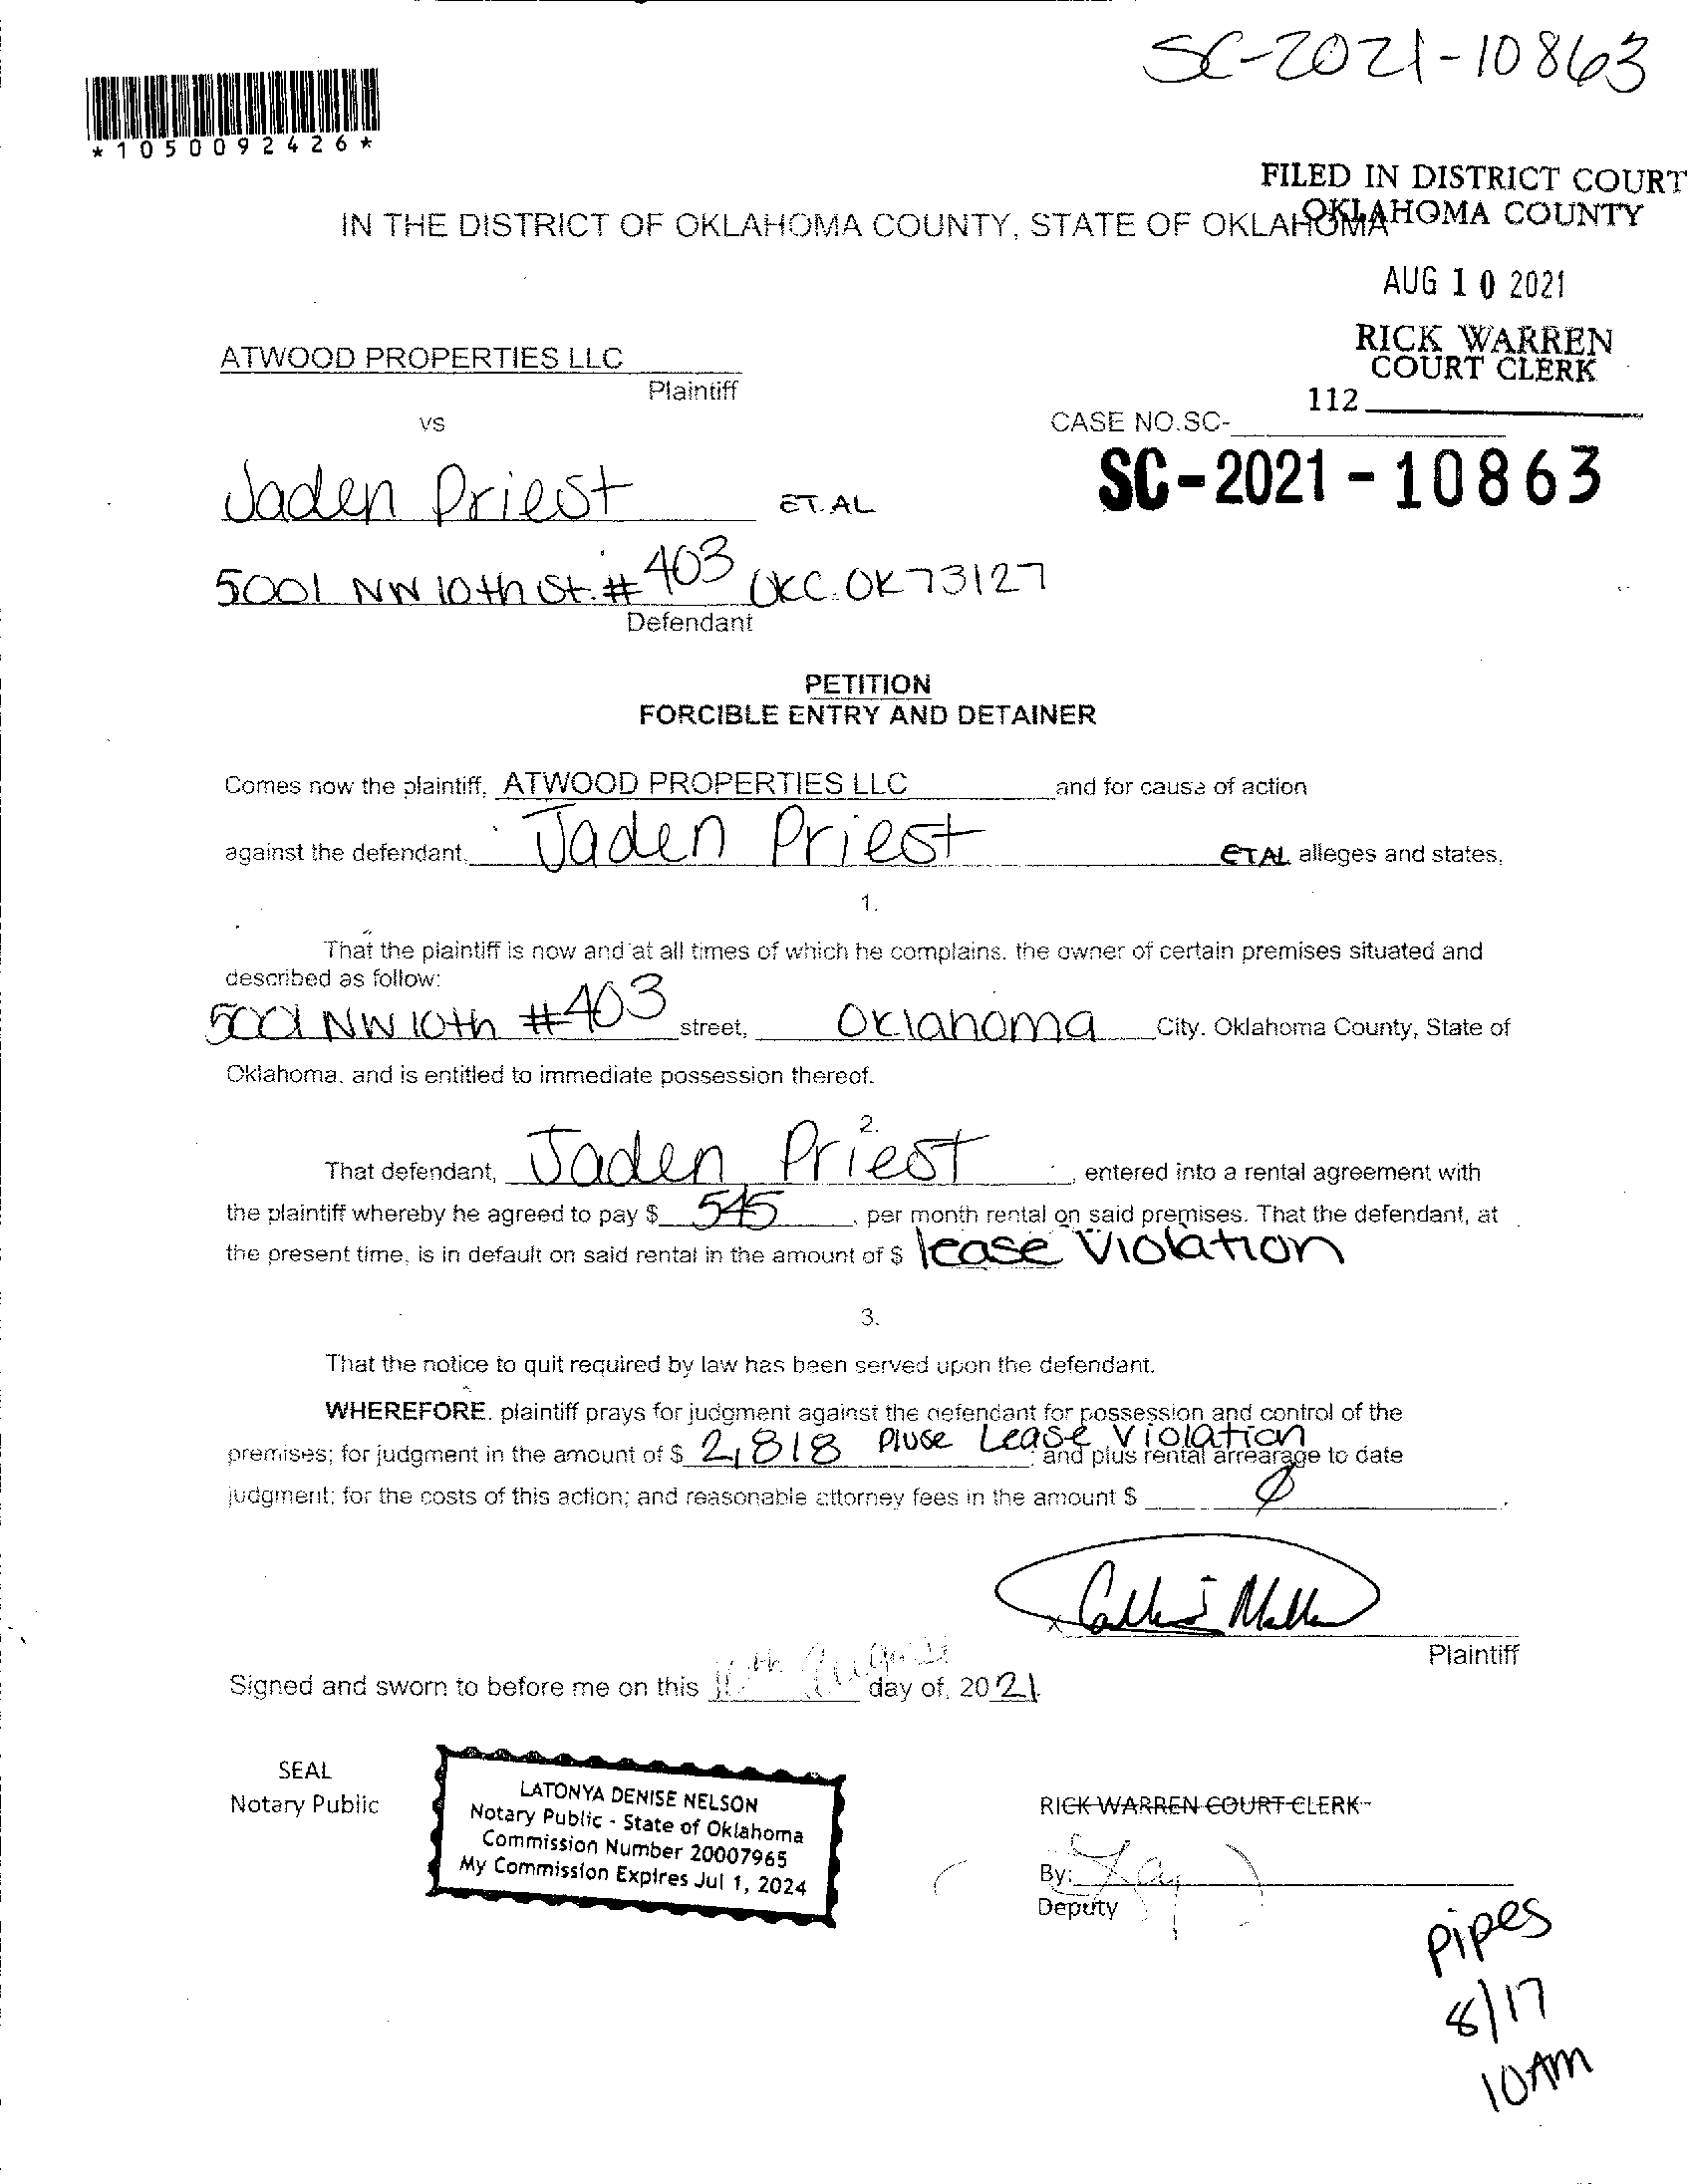 SC-2021-10863
*1050092426*
FILED IN DISTRICT COURT
OKLAHOMA COUNTY
IN THE DISTRICT OF OKLAHOMA COUNTY, STATE OF OKLAHOMA
AUG 10 2021
RICK WARREN
COURT CLERK
112
ATWOOD PROPERTIES LLC
Plaintiff
vs
CASE NO.SC-
SC-2021-10863
Jaden Priest ET.AL
5001 NW 10th St. #403 OKC. OK 73127
Defendant
PETITION
FORCIBLE ENTRY AND DETAINER
Comes now the plaintiff, ATWOOD PROPERTIES LLC and for cause of action
against the defendant, Jaden Priest ETAL alleges and states,
1.
That the plaintiff is now and at all times of which he complains, the owner of certain premises situated and
described as follow:
5001 NW 10th #403 street, Oklahoma City, Oklahoma County, State of
Oklahoma, and is entitled to immediate possession thereof.
2.
That defendant, Jaden Priest, entered into a rental agreement with
the plaintiff whereby he agreed to pay $ 545, per month rental on said premises. That the defendant, at
the present time, is in default on said rental in the amount of $ lease Violation
3.
That the notice to quit required by law has been served upon the defendant.
WHEREFORE, plaintiff prays for judgment against the defendant for possession and control of the
premises; for judgment in the amount of $ 2,818 Pluse Lease Violation; and plus rental arrearage to date
judgment; for the costs of this action; and reasonable attorney fees in the amount $ Ø.
x
Plaintiff
Signed and sworn to before me on this 10th August day of, 2021.
SEAL
Notary Public
LATONYA DENISE NELSON
Notary Public - State of Oklahoma
Commission Number 20007965
My Commission Expires Jul 1, 2024
RICK WARREN COURT CLERK
By:
Deputy
Pipes
8/17
10AM